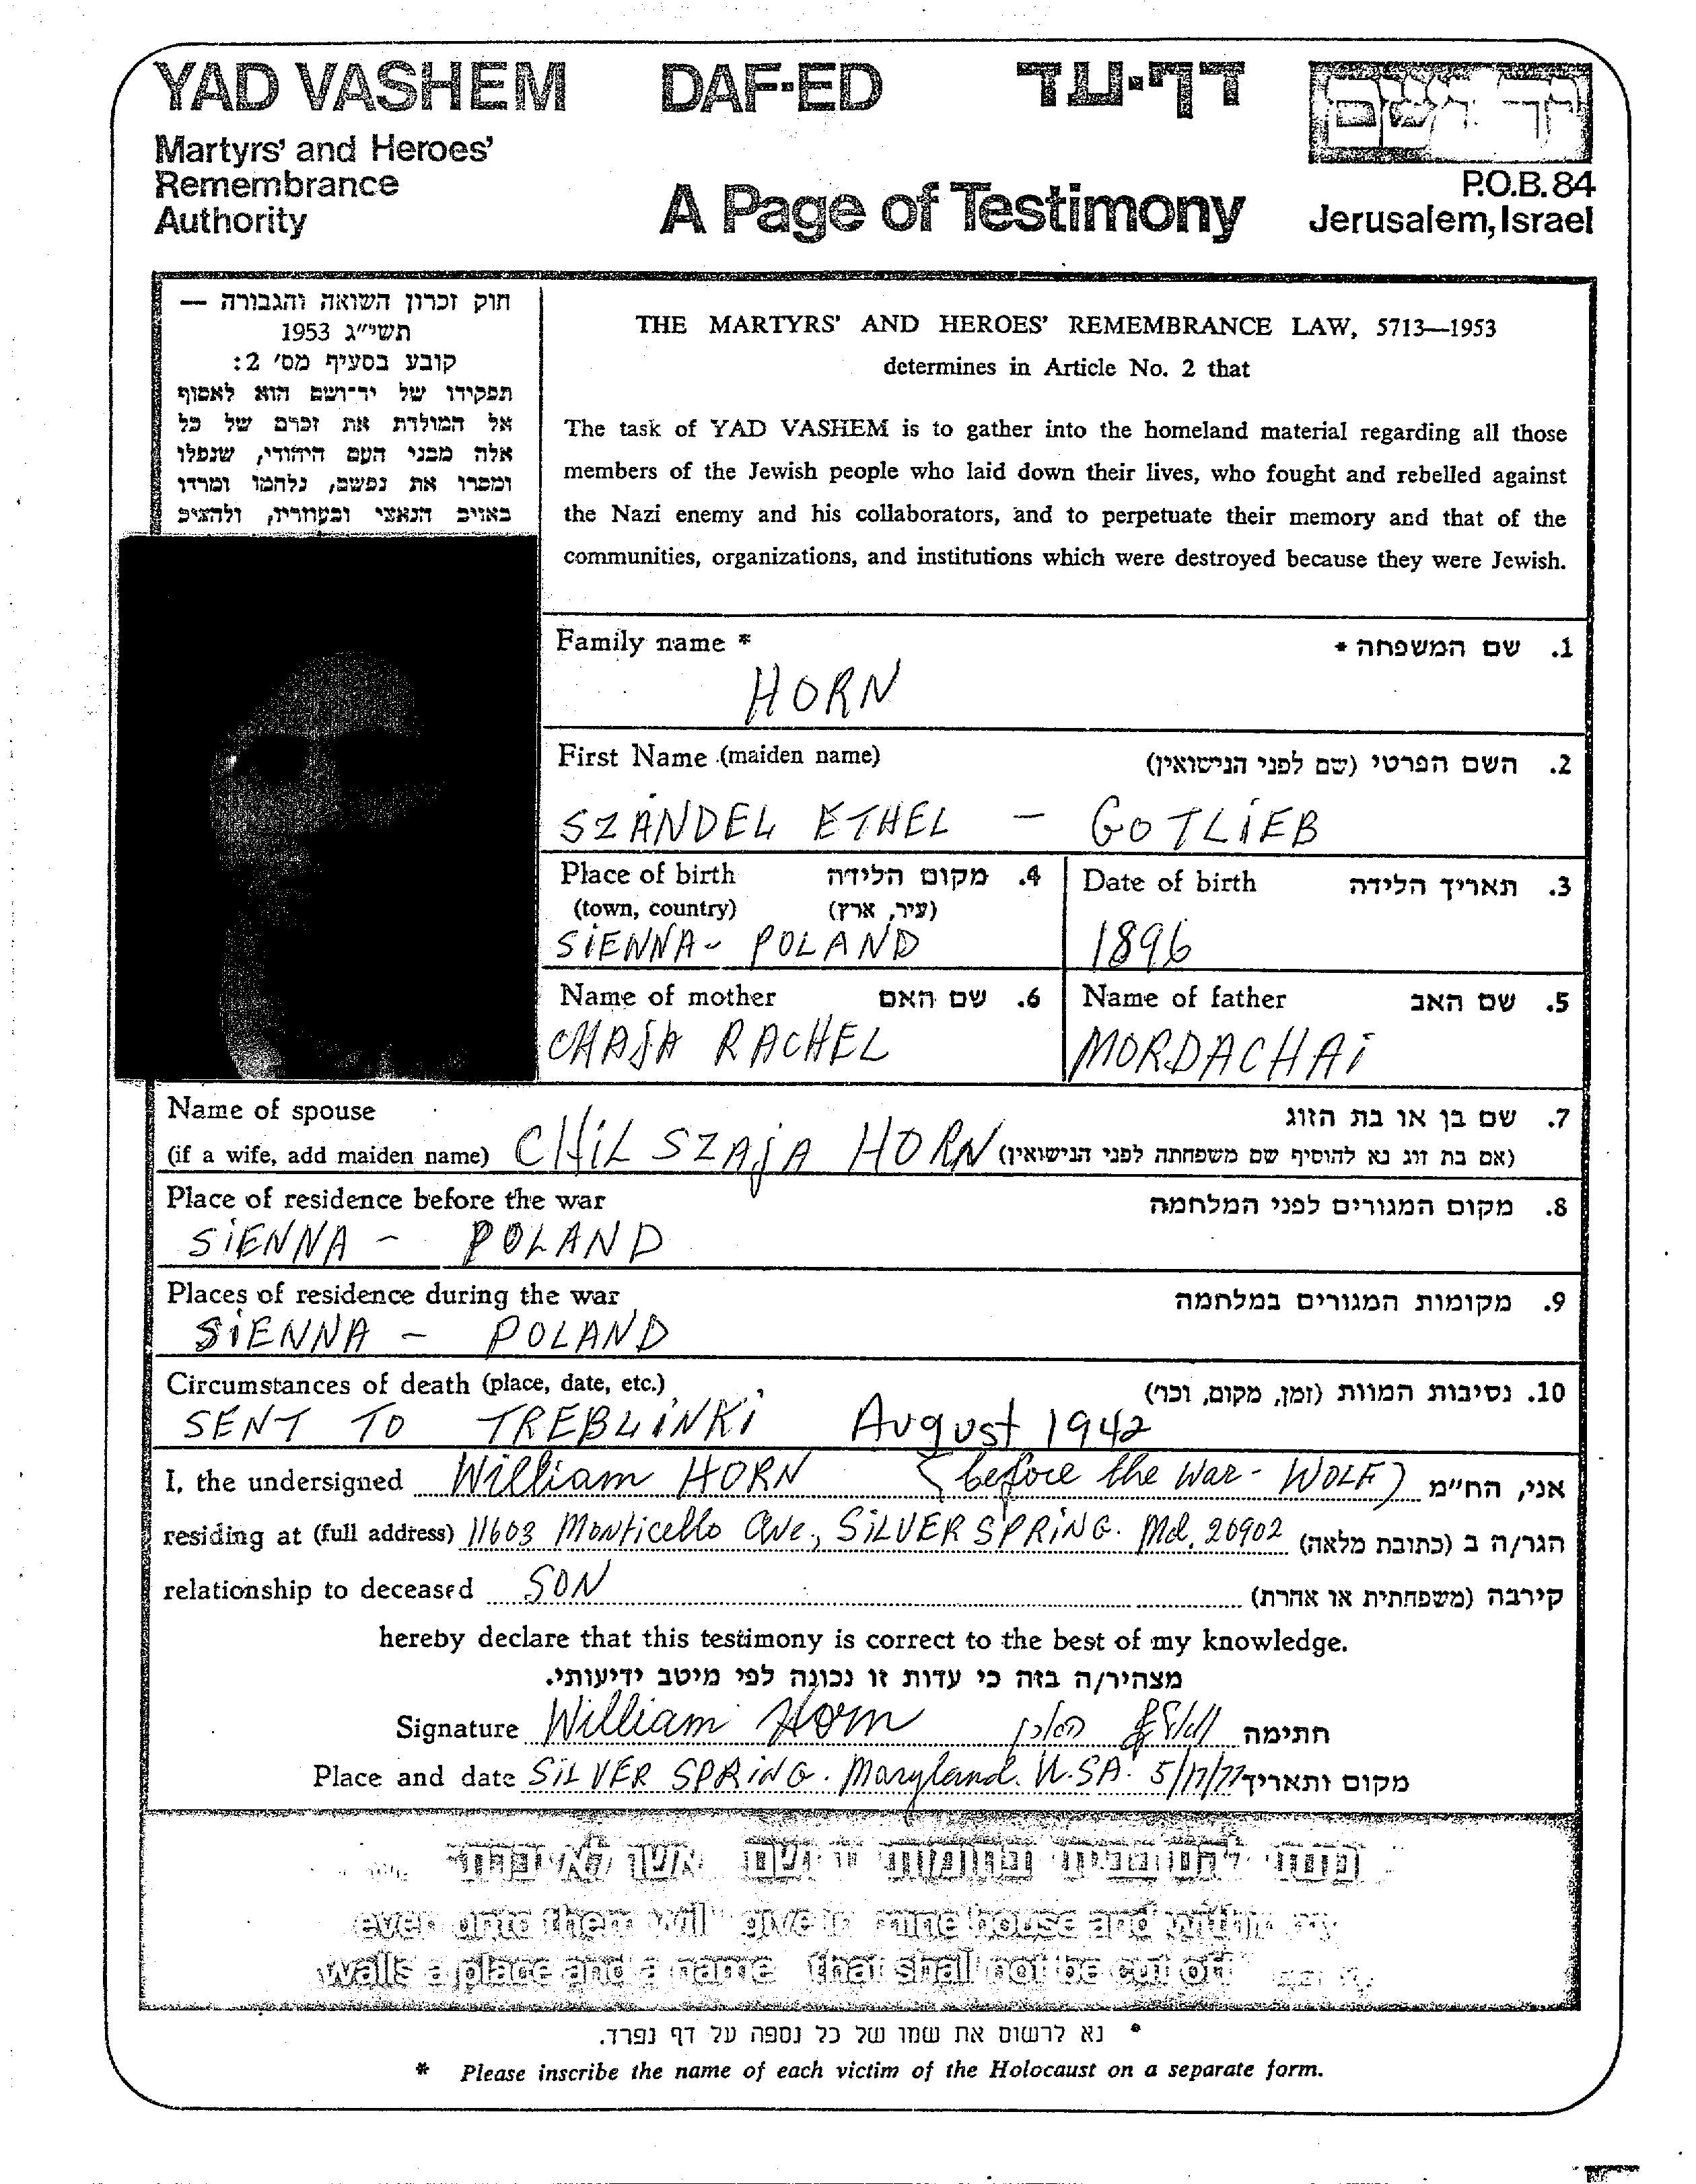 YAD VASHEM DAF-ED דף-עד
Martyrs' and Heroes'
Remembrance
Authority
A Page of Testimony
יד ושם
P.O.B. 84
Jerusalem, Israel
חוק זכרון השואה והגבורה —
תשי״ג 1953
קובע בסעיף מס׳ 2:
תפקידו של יד־ושם הוא לאסוף
אל המולדת את זכרם של כל
אלה מבני העם היהודי, שנפלו
ומסרו את נפשם, נלחמו ומרדו
באויב הנאצי ובעוזריו, ולהציב
THE MARTYRS' AND HEROES' REMEMBRANCE LAW, 5713—1953
determines in Article No. 2 that
The task of YAD VASHEM is to gather into the homeland material regarding all those
members of the Jewish people who laid down their lives, who fought and rebelled against
the Nazi enemy and his collaborators, and to perpetuate their memory and that of the
communities, organizations, and institutions which were destroyed because they were Jewish.
Family name * 1. שם המשפחה *
HORN
First Name (maiden name) 2. השם הפרטי (שם לפני הנישואין)
SZANDEL ETHEL - GOTLIEB
Place of birth 4. מקום הלידה
(town, country) (עיר, ארץ)
SIENNA - POLAND
Date of birth 3. תאריך הלידה
1896
Name of mother 6. שם האם
CHAJA RACHEL
Name of father 5. שם האב
MORDACHAI
Name of spouse 7. שם בן או בת הזוג
(if a wife, add maiden name) CHIL SZAJA HORN (אם בת זוג נא להוסיף שם משפחתה לפני הנישואין)
Place of residence before the war 8. מקום המגורים לפני המלחמה
SIENNA - POLAND
Places of residence during the war 9. מקומות המגורים במלחמה
SIENNA - POLAND
Circumstances of death (place, date, etc.) 10. נסיבות המוות (זמן, מקום, וכו׳)
SENT TO TREBLINKI August 1942
I, the undersigned William HORN (before the War - WOLF) אני, הח״מ
residing at (full address) 11603 Monticello Ave., SILVER SPRING. Md. 20902 הגר/ה ב (כתובת מלאה)
relationship to deceased SON קירבה (משפחתית או אחרת)
hereby declare that this testimony is correct to the best of my knowledge.
מצהיר/ה בזה כי עדות זו נכונה לפי מיטב ידיעותי.
Signature William Horn חתימה
Place and date SILVER SPRING. Maryland. U.S.A. 5/17/77 מקום ותאריך
even unto them will I give in mine house and within my
walls a place and a name that shall not be cut off
* נא לרשום את שמו של כל נספה על דף נפרד.
* Please inscribe the name of each victim of the Holocaust on a separate form.